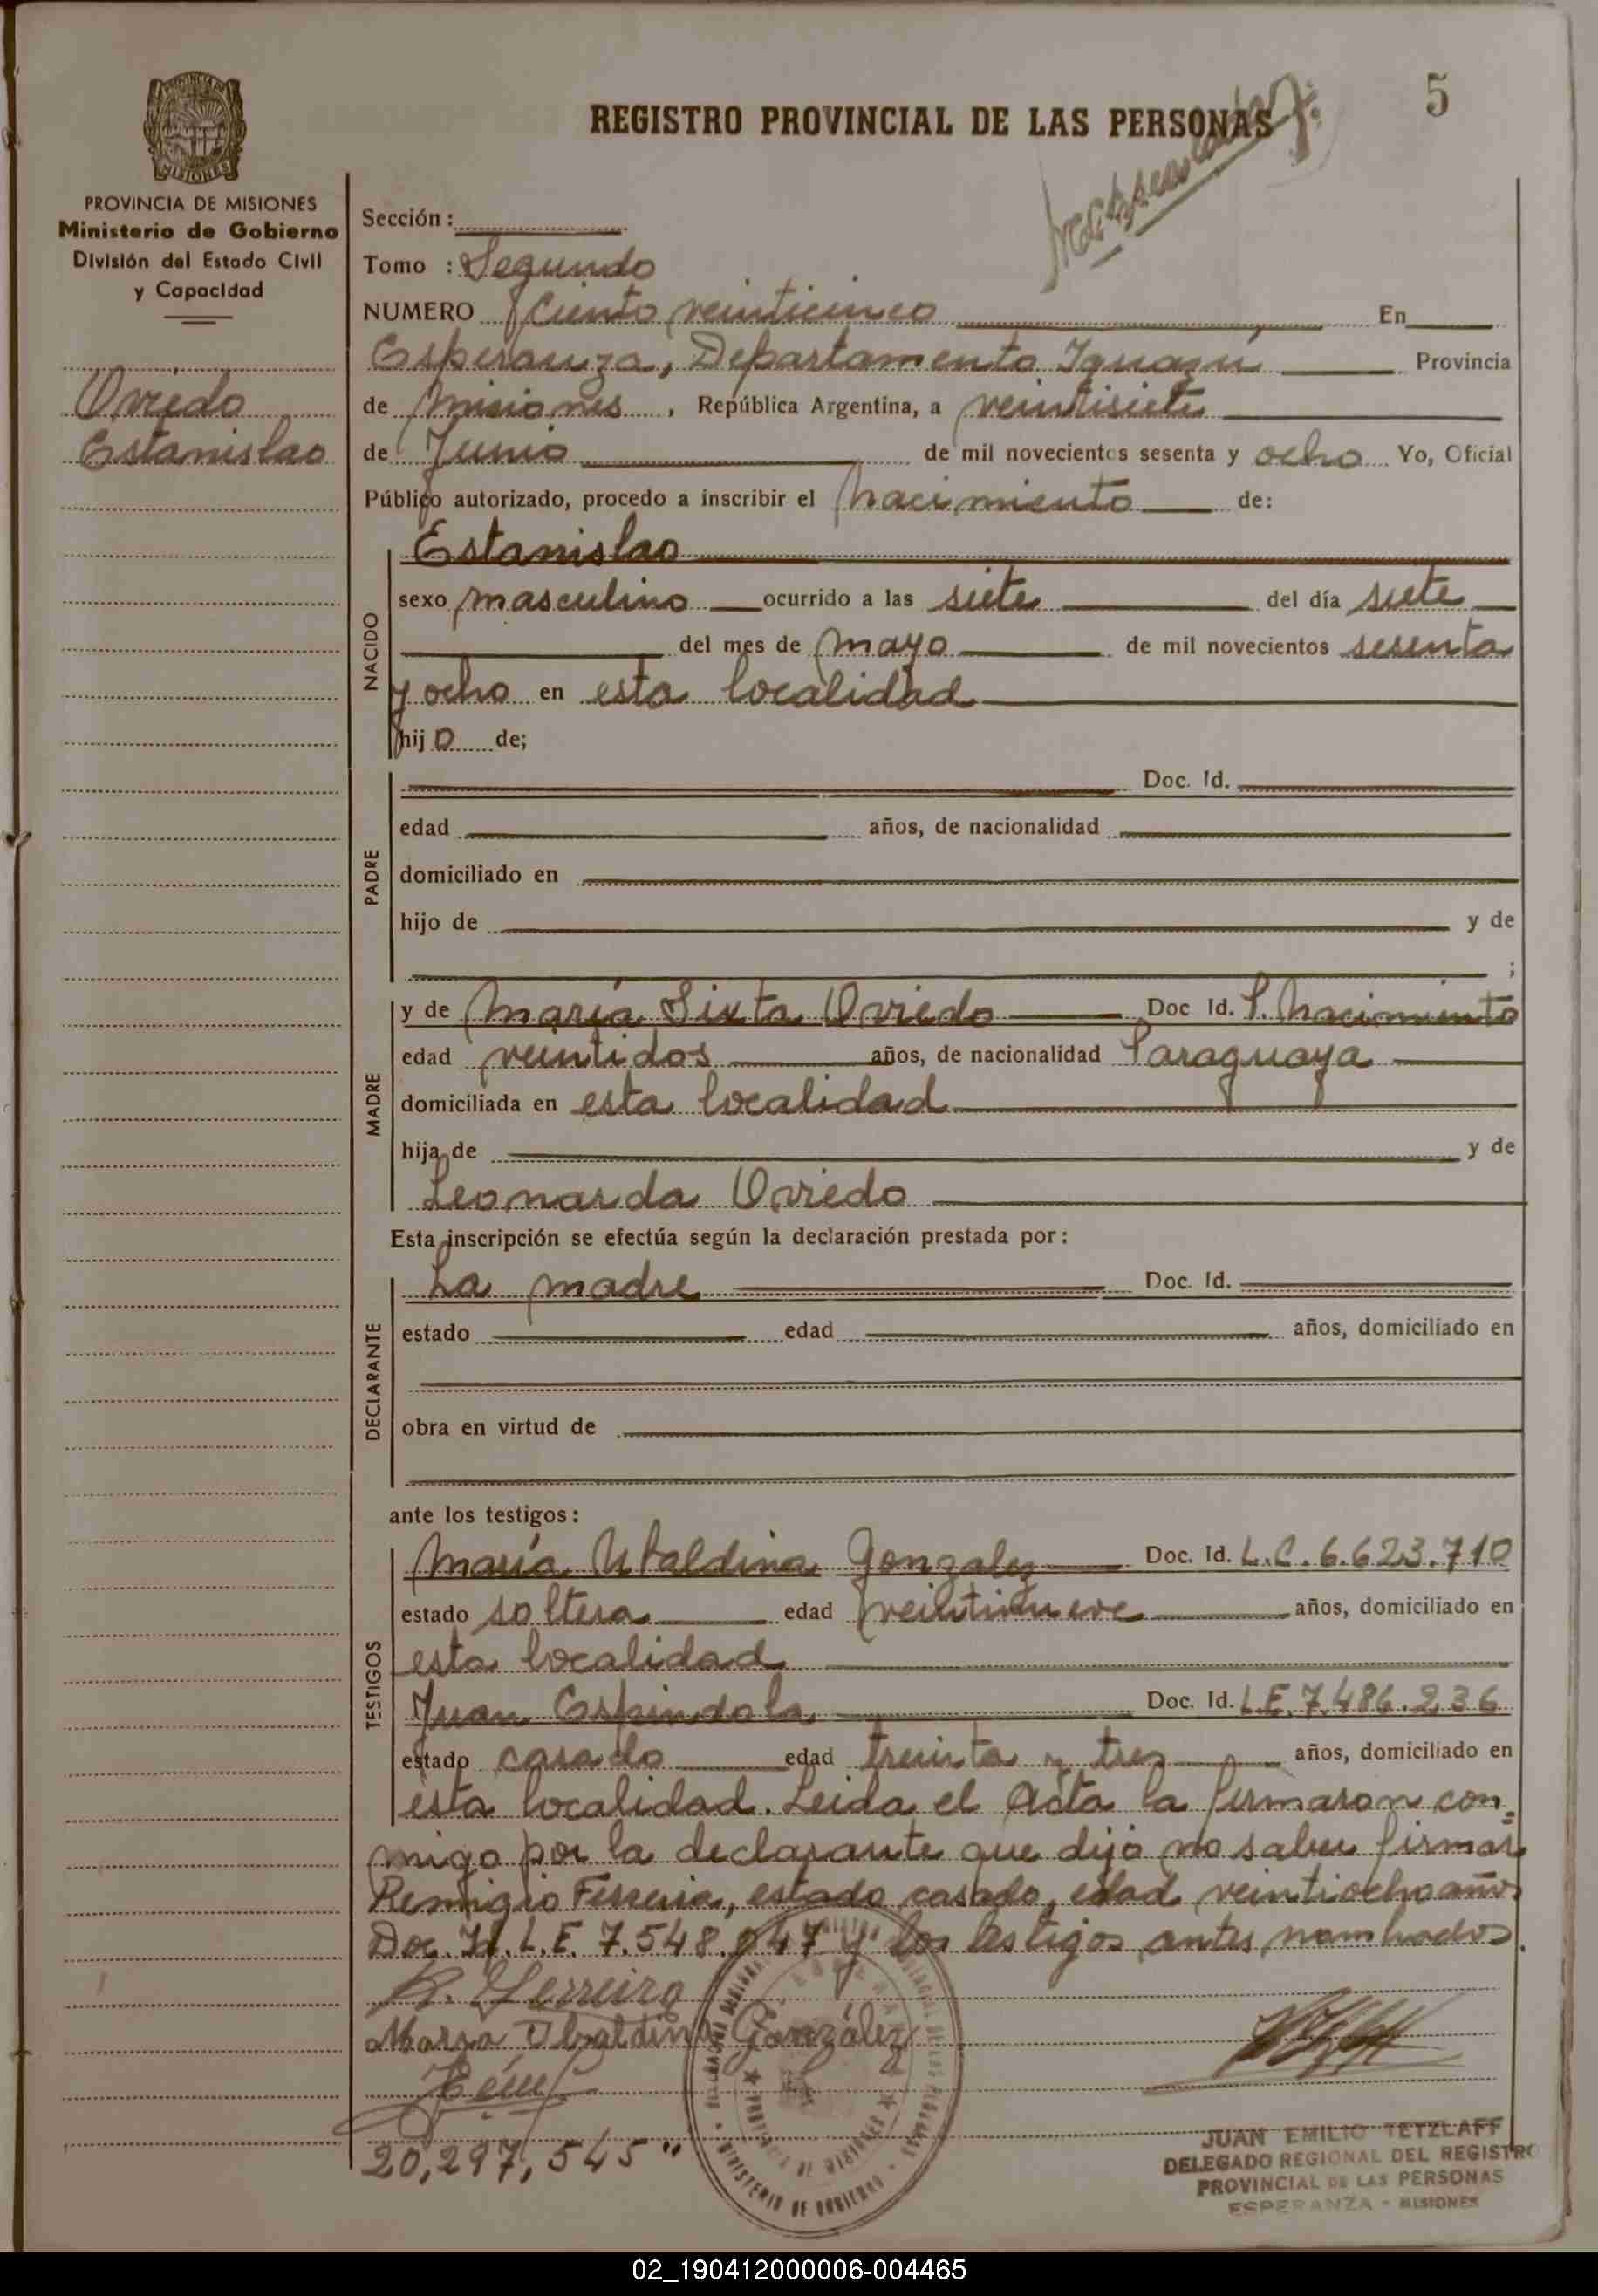 5
REGISTRO PROVINCIAL DE LAS PERSONAS
MISIONES
PROVINCIA DE MISIONES
Ministerio de Gobierno
División del Estado Civil
y Capacidad
Oviedo
Estanislao
Sección :
Tomo : Segundo
NUMERO Ciento veinticinco En
Esperanza, Departamento Iguazú Provincia
de Misiones, República Argentina, a veintisiete
de Junio de mil novecientos sesenta y ocho Yo, Oficial
Público autorizado, procedo a inscribir el nacimiento de:
NACIDO
Estanislao
sexo masculino ocurrido a las siete del día siete
del mes de mayo de mil novecientos sesenta
y ocho en esta localidad
hijo de;
PADRE
Doc. Id.
edad años, de nacionalidad
domiciliado en
hijo de y de
;
MADRE
y de María Sixta Oviedo Doc Id. P. Nacimiento
edad veintidos años, de nacionalidad Paraguaya
domiciliada en esta localidad
hija de y de
Leonarda Oviedo
Esta inscripción se efectúa según la declaración prestada por:
DECLARANTE
La madre Doc. Id.
estado edad años, domiciliado en
obra en virtud de
ante los testigos:
TESTIGOS
María Ubaldina Gonzalez Doc. Id. L.C. 6.623.710
estado soltera edad veintinueve años, domiciliado en
esta localidad
Juan Espindola Doc. Id. L.E. 7.486.236
estado casado edad treinta y tres años, domiciliado en
esta localidad. Leida el Acta la firmaron con-
migo por la declarante que dijo no saber firmar
Remigio Ferreira, estado casado, edad veintiocho años
Doc. Id. L.E. 7.548.047 y los testigos antes nombrados.
R. Ferreira
Maria Ubaldina González
20,297,545"
MINISTERIO DE GOBIERNO
PROVINCIA DE MISIONES
JUAN EMILIO TETZLAFF
DELEGADO REGIONAL DEL REGISTRO
PROVINCIAL DE LAS PERSONAS
ESPERANZA - MISIONES
02_190412000006-004465